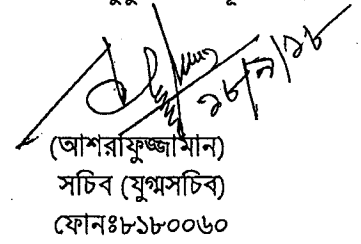 ১৮/৯/১৮
(আশরাফুজ্জামান)
সচিব (যুগ্মসচিব)
ফোনঃ৮১৮০০৬০